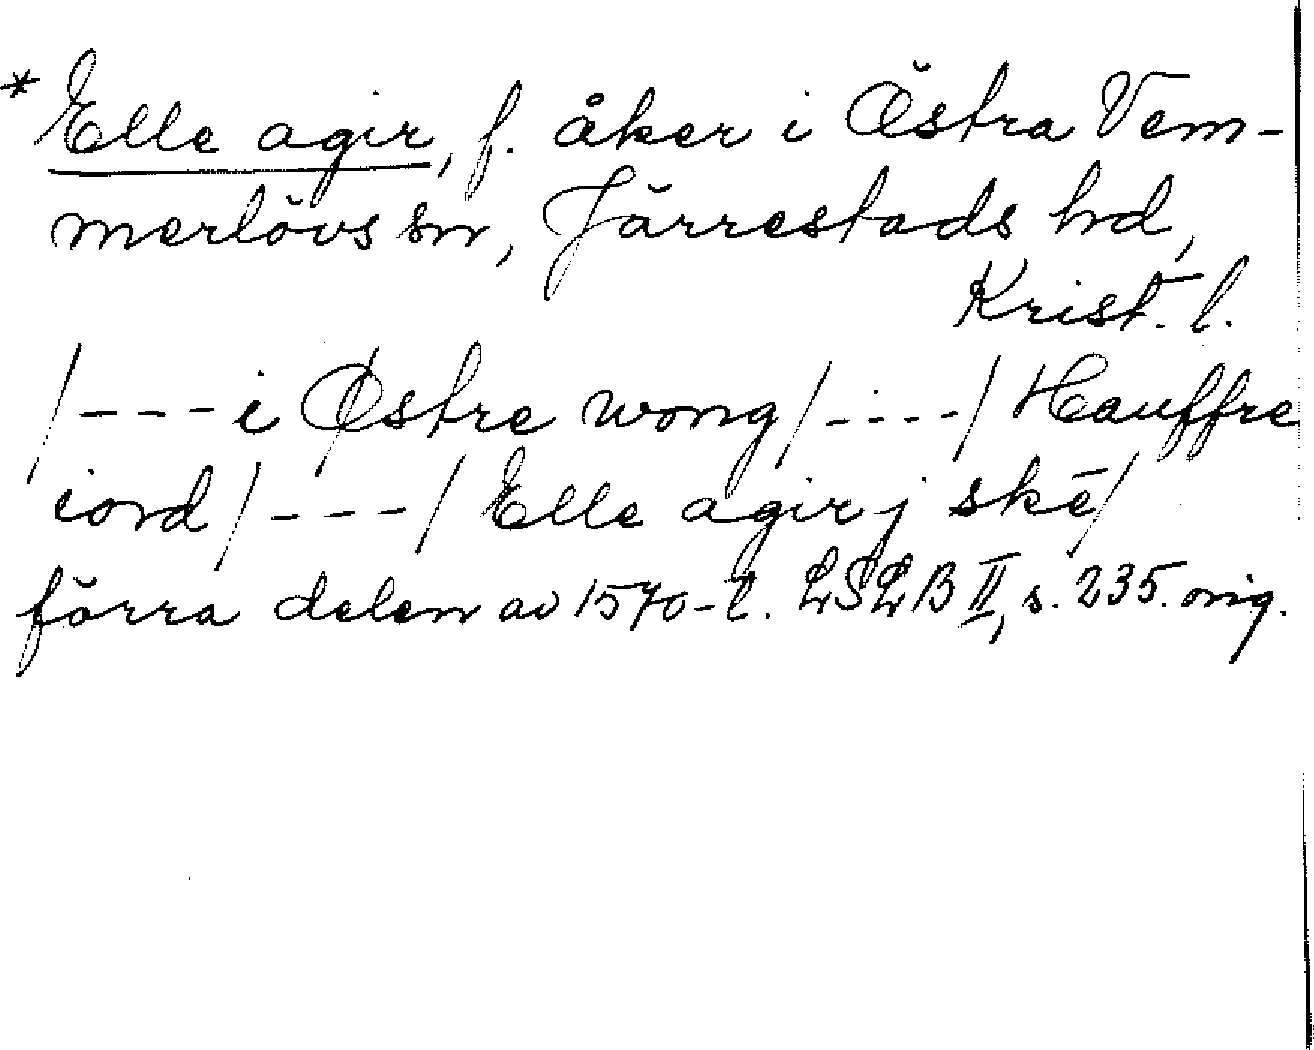 * Elle agir, f. åker i Östra Vem-
merlövs sn, Järrestads hd,
Krist. l.
/---i Østre wong/----/ Hauffre
iord/----/ Elle agir j skē/
förra delen av 1570-t. LSLB II, s. 235. orig.